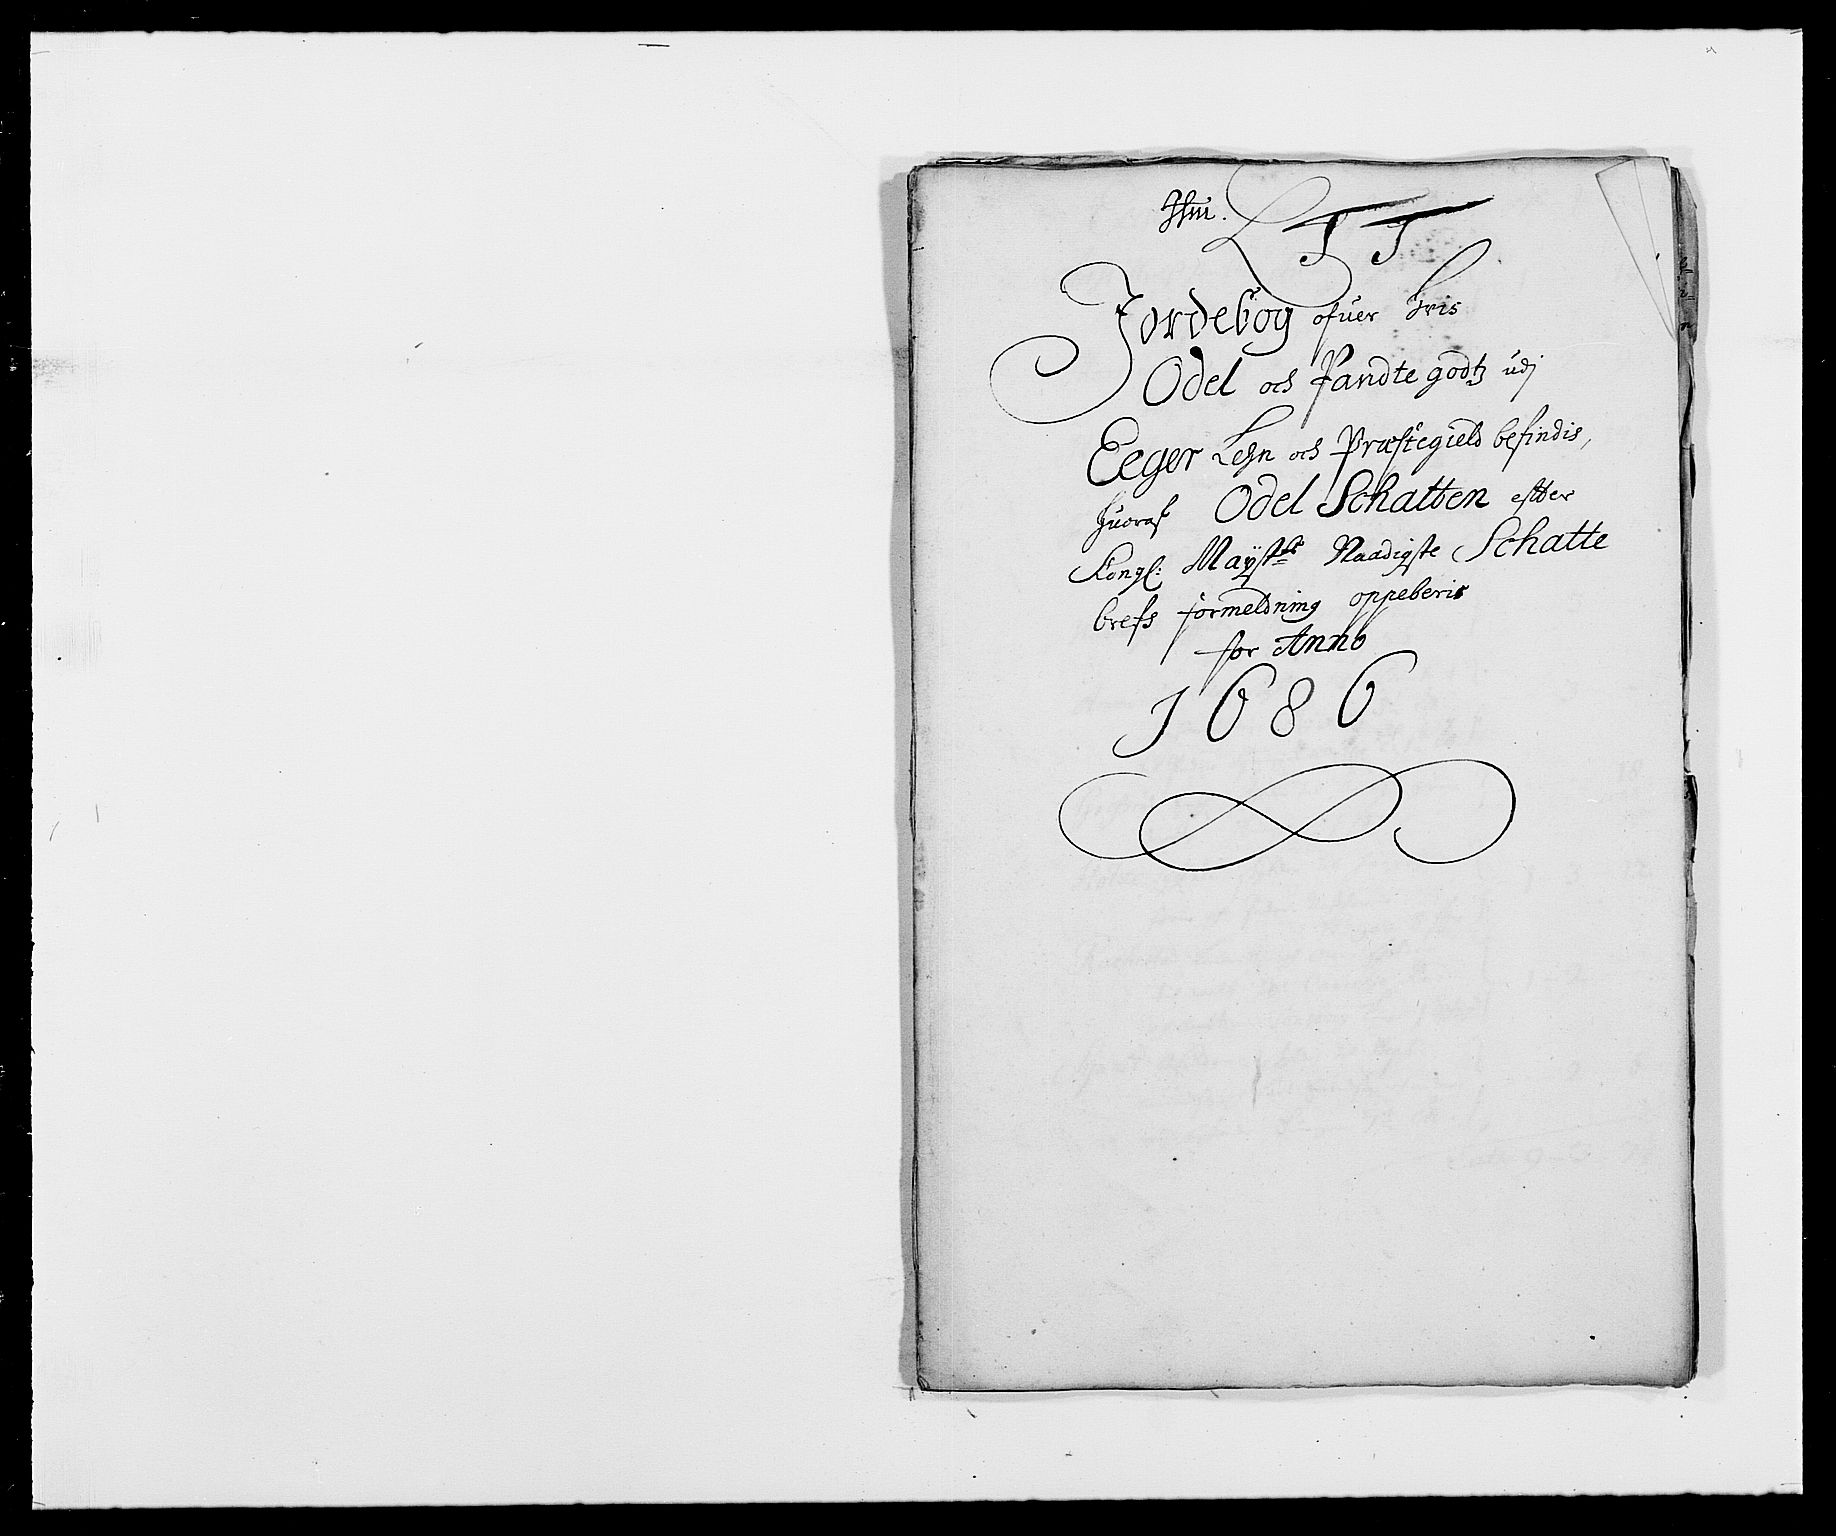 Jordebog ofuer hvis
Odel och Pandte godtz udj
Eeger Lehn och Præstegield befindis,
huoraf Odel Schatten efter
Kongl: Mayst:tz Naadigste Schatte
brefs formeldning oppeberis
for Anno
1686